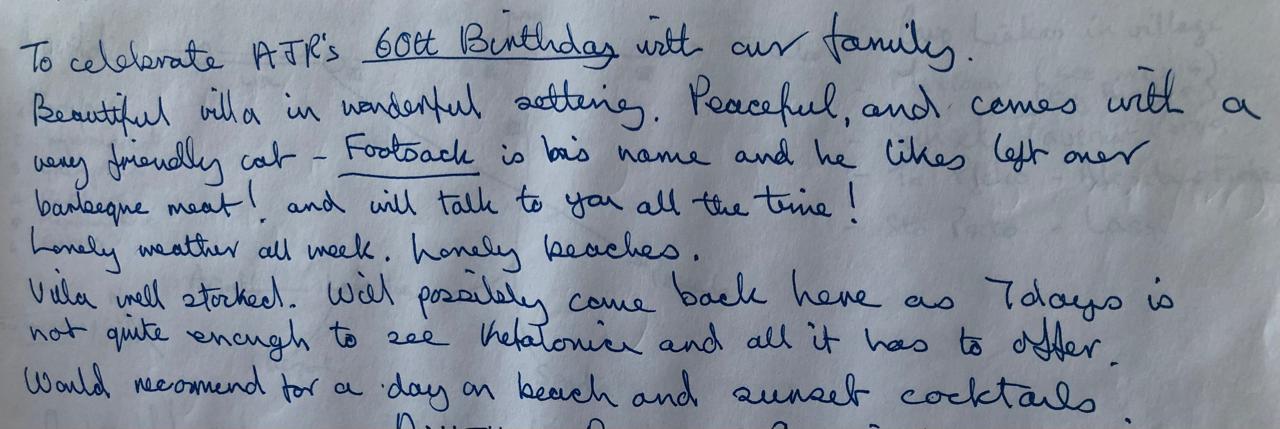 To celebrate ATR's 60th Birthday with our family.
Beautiful villa in wonderful setting. Peaceful, and comes with a
very friendly cat - Footsack is his name and he likes left over
barbeque meat! and will talk to you all the time!
Lovely weather all week. Lovely beaches.
Villa well stocked. Will possibly come back here as 7 days is
not quite enough to see Kefalonia and all it has to offer.
Would recomend for a day on beach and sunset cocktails.